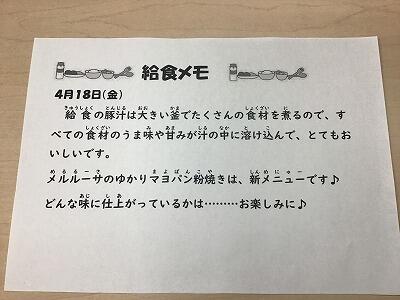 給食メモ
4月18日(金)
給食の豚汁は大きい釜でたくさんの食材を煮るので、す
べての食材のうま味や甘みが汁の中に溶け込んで、とてもお
いしいです。
メルルーサのゆかりマヨパン粉焼きは、新メニューです♪
どんな味に仕上がっているかは………お楽しみに♪